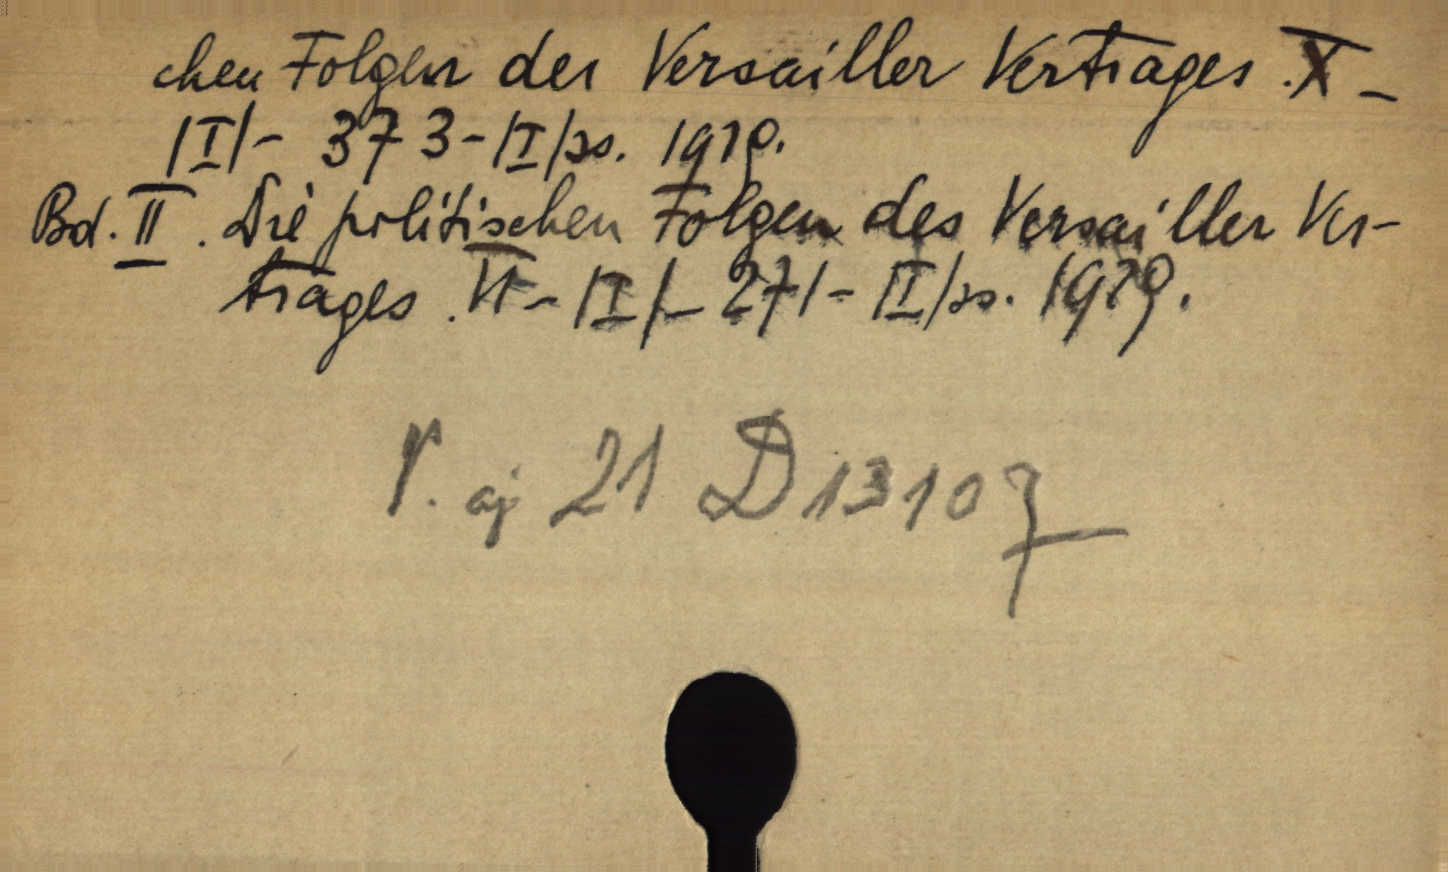 chen Folgen des Versailler Vertrages. X -
/I/ - 373 - /I/ ss. 1919.
Bd. II. Die politischen Folgen des Versailler Ver-
trages. VI - /I/ - 271 - /I/ ss. 1919.
V. aj 21 D 13107